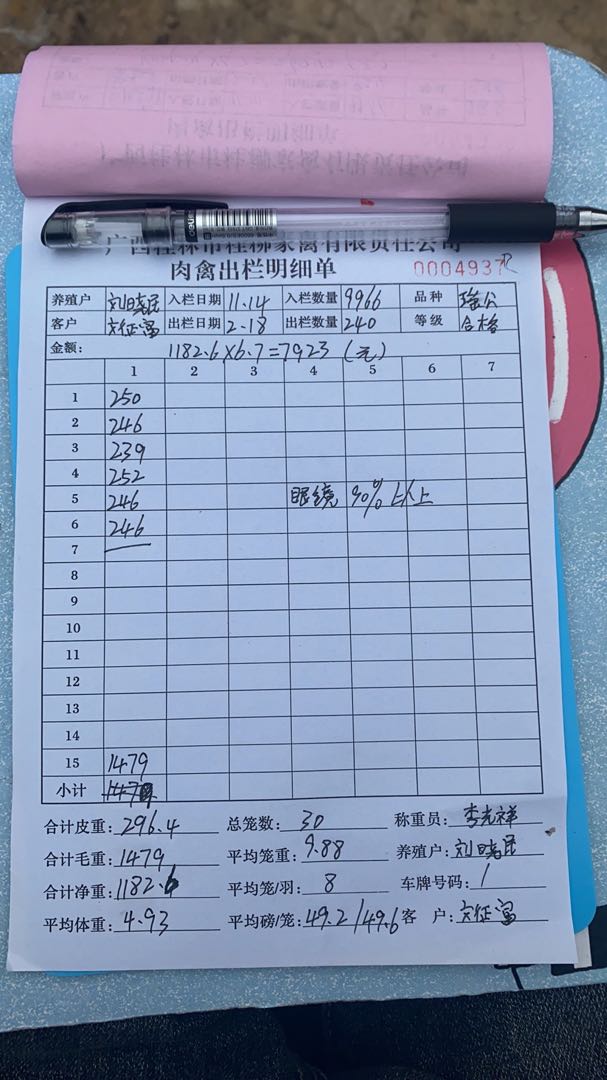 广西桂林市桂柳家禽有限责任公司
肉禽出栏明细单 0004937
养殖户 刘晓民 入栏日期 11.14 入栏数量 9966 品种 瑶公
客户 文征富 出栏日期 2.18 出栏数量 240 等级 合格
金额: 1182.6×6.7=7923 (元)
1 2 3 4 5 6 7
1 250
2 246
3 239
4 252
5 246 90%以上
6 246
7
8
9
10
11
12
13
14
15 1479
小计
合计皮重: 296.4 总笼数: 30 称重员: 李光祥
合计毛重: 1479 平均笼重: 9.88 养殖户: 刘晓民
合计净重: 1182.6 平均笼/羽: 8 车牌号码: /
平均体重: 4.93 平均磅/笼: 49.2/49.6 客 户: 文征富